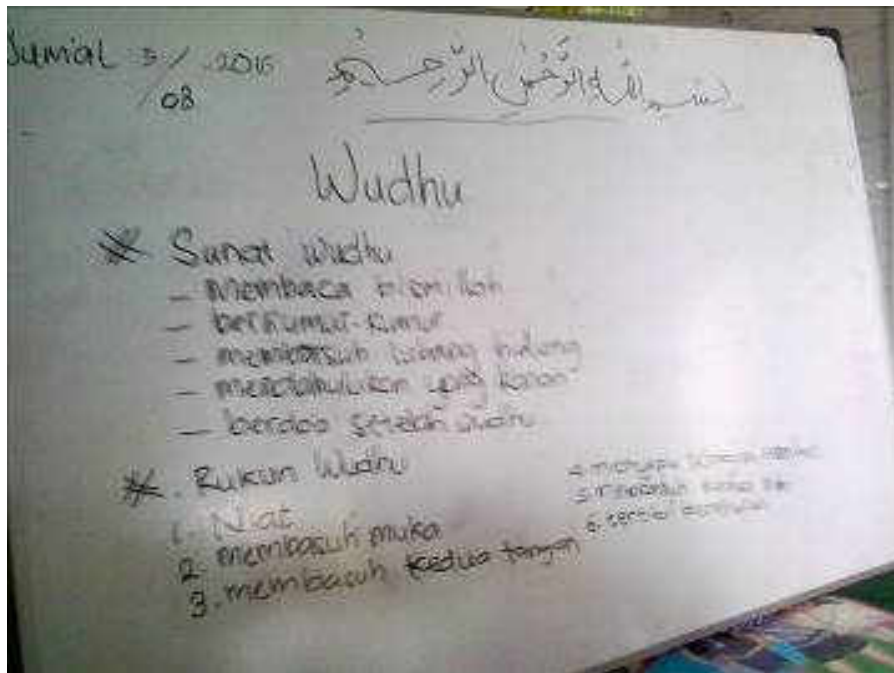 Jumiat 5/08 2016
بسم الله الرحمن الرحيم
Wudhu
* Sunat wudhu
- Membaca bismillah
- berkumur-kumur
- membasuh lubang hidung
- mendahulukan yang kanan
- berdoa setelah wudhu
* . Rukun Wudhu
1. Niat
2. membasuh muka
3. membasuh kedua tangan
4. mengusap sebagian kepala
5. membasuh kedua kaki
6. tertib